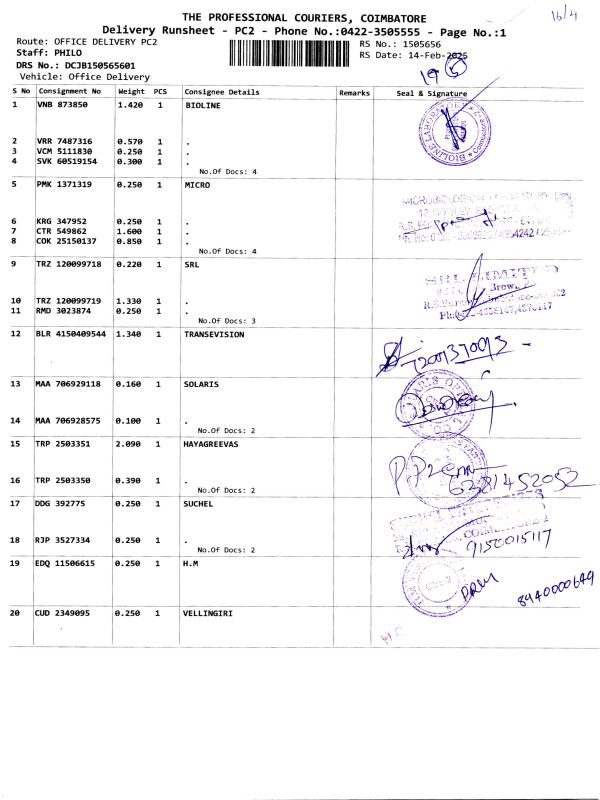 16/4
THE PROFESSIONAL COURIERS, COIMBATORE
Delivery Runsheet - PC2 - Phone No.:0422-3505555 - Page No.:1
Route: OFFICE DELIVERY PC2
RS No.: 1505656
Staff: PHILO
RS Date: 14-Feb-2025
DRS No.: DCJB150565601
Vehicle: Office Delivery
19
S No Consignment No Weight PCS Consignee Details Remarks Seal & Signature
1 VNB 873850 1.420 1 BIOLINE
BIOLINE LABORATORY
2 VRR 7487316 0.570 1 .
3 VCM 5111830 0.250 1 .
4 SVK 60519154 0.300 1 .
No.Of Docs: 4
5 PMK 1371319 0.250 1 MICRO
6 KRG 347952 0.250 1 .
7 CTR 549862 1.600 1 .
8 COK 25150137 0.850 1 .
No.Of Docs: 4
9 TRZ 120099718 0.220 1 SRL
SRL LIMITED
10 TRZ 120099719 1.330 1 .
11 RMD 3023874 0.250 1 .
No.Of Docs: 3
12 BLR 4150409544 1.340 1 TRANSEVISION
7200137093
13 MAA 706929118 0.160 1 SOLARIS
14 MAA 706928575 0.100 1 .
No.Of Docs: 2
15 TRP 2503351 2.090 1 HAYAGREEVAS
16 TRP 2503350 0.390 1 .
6281452052
No.Of Docs: 2
17 DDG 392775 0.250 1 SUCHEL
18 RJP 3527334 0.250 1 .
9150015117
No.Of Docs: 2
19 EDQ 11506615 0.250 1 H.M
8940000649
20 CUD 2349095 0.250 1 VELLINGIRI